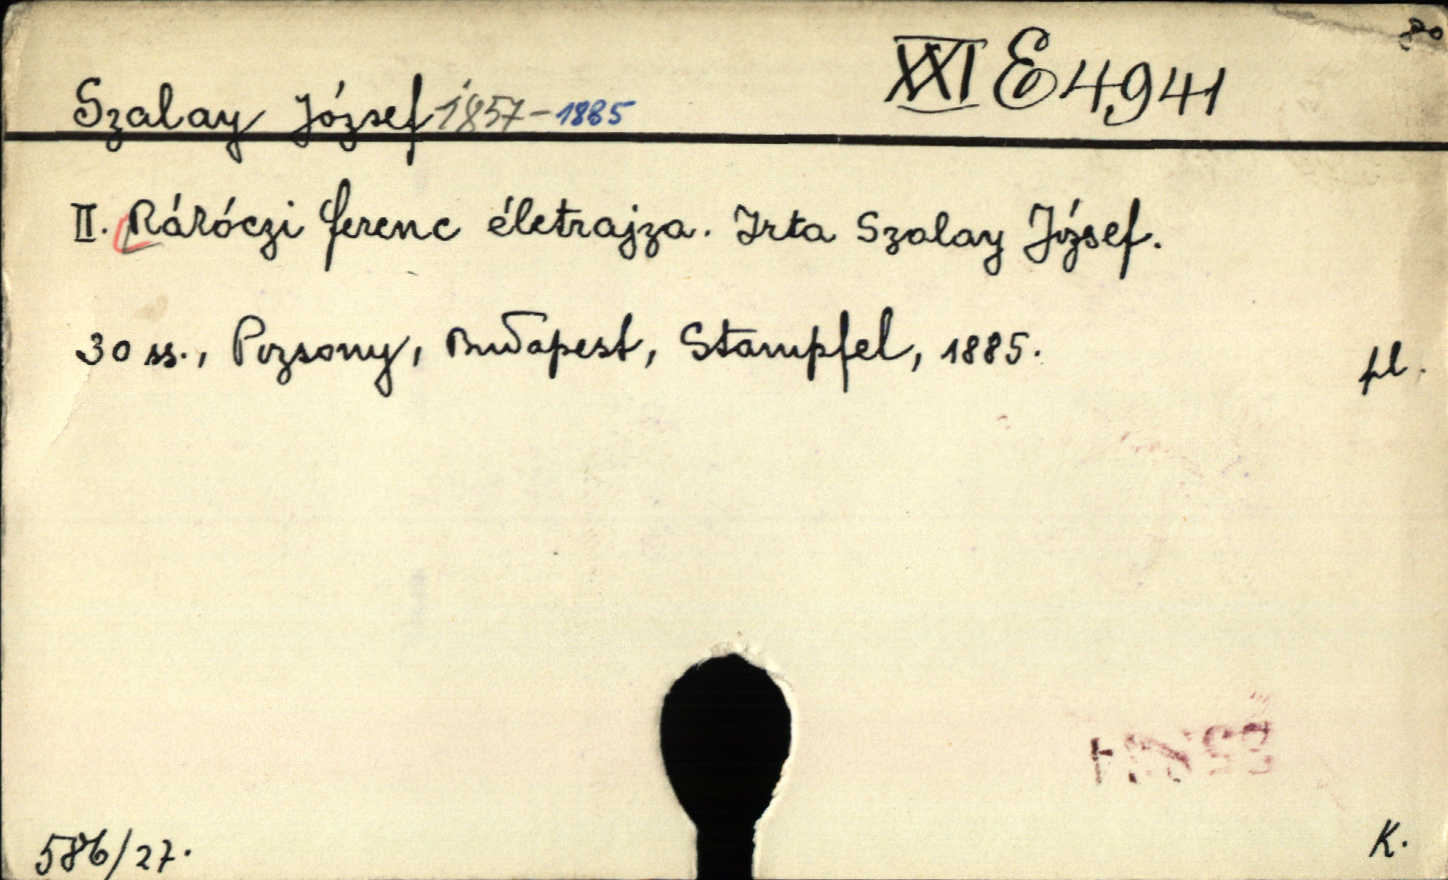 8°
XXI E 4941
Szalay József 1857-1885
II. Rákóczi Ferenc életrajza. Irta Szalay József.
30 ss., Pozsony, Budapest, Stampfel, 1885.
fl.
586/27.
K.